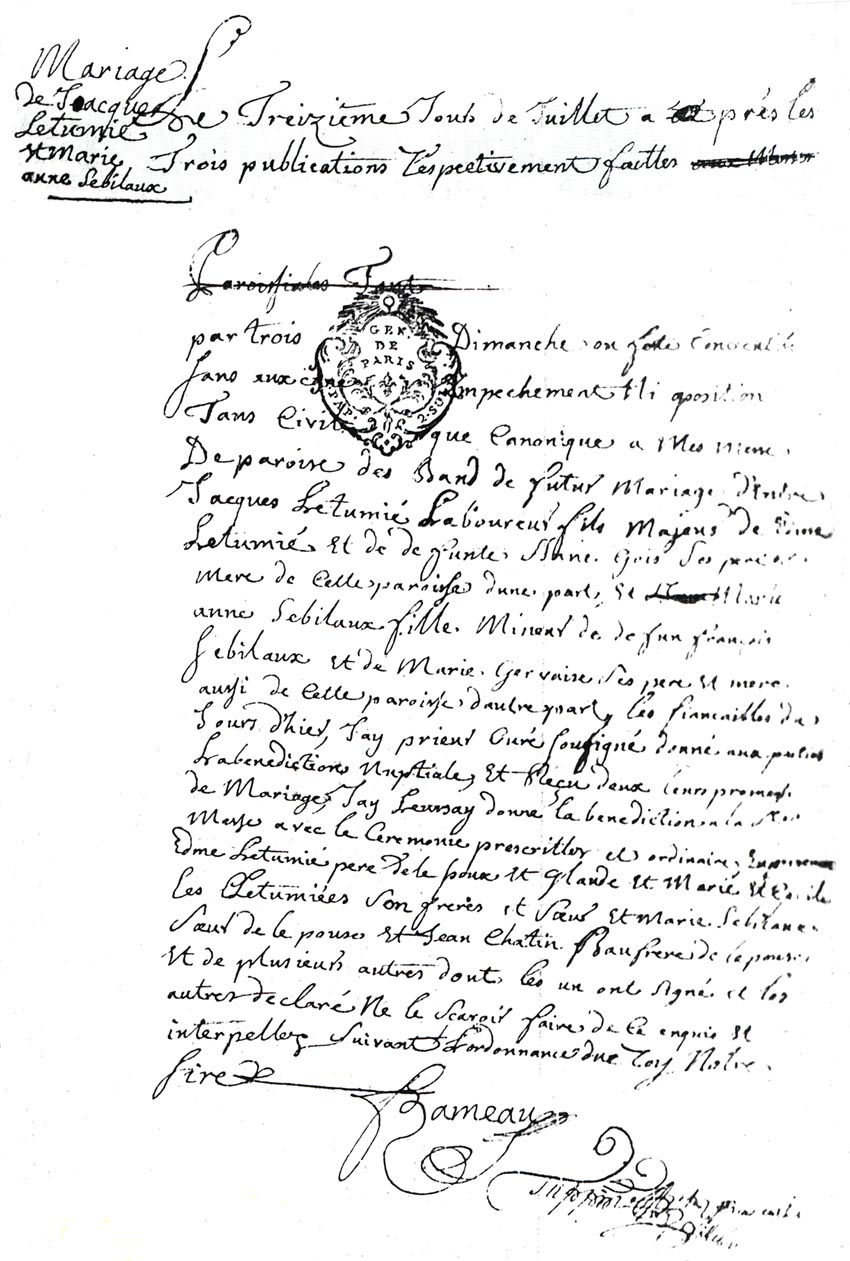 Mariage
de Jacques
Letumié
et Marie
anne Sebilaux
Le Treizieme Jour de Juillet a près les
Trois publications Respectivement faittes
Paroissiales Tant
par trois Dimanche ou fete
GEN.
DE
PARIS
sans aux cune Impechement Ni oposition
Tans Civil que Canonique a Mes
De paroise des Band de futur Mariage d'Entre
Jacques Letumié Laboureur fils Majeur de Edme
Letumié Et de de funte Anne Gois Ses pere et
mere de Cette paroisse dune part, Et Marie
anne Sebilaux fille Mineur de de fun françois
Sebilaux et de Marie Gervaise Ses pere et mere
aussi de Cette paroisse d'autre part, les fiancailles du
Jours d'hier, Jay prieur Curé Sousigné donné aux
La benediction Nuptiale, Et Reçu deux leurs promesse
de Mariage, Jay Leursay donne la benediction a la
Messe avec le Ceremonie prescrittes et ordinaire,
Edme Letumié pere de le poux et Glaude et Marie et
les Letumiées Son freres et Sœur et Marie Sebilaux
Sœur de le pouse et Jean Chatin Baufrere de le pouse
Et de plusieurs autres dont les un ont Signé et les
autres declaré Ne le Scavoir faire de Ce enquis et
interpellez Suivant L'ordonnance due Roy Notre
Sire
Rameau